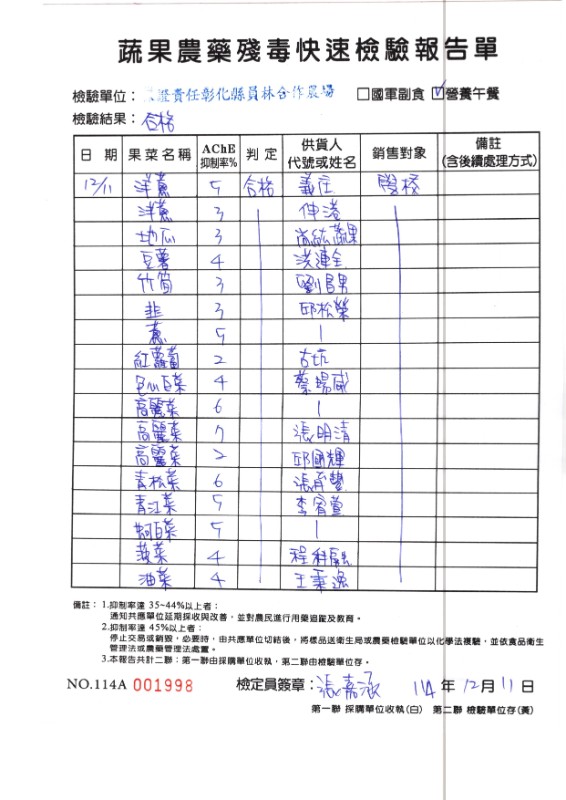 蔬果農藥殘毒快速檢驗報告單
檢驗單位： 責任彰化縣員林合作農場 □國軍副食 ☑營養午餐
檢驗結果：合格
日期 果菜名稱 AChE抑制率% 判定 供貨人代號或姓名 銷售對象 備註(含後續處理方式)
12/11 洋蔥 5 合格 義庄 學校
洋蔥 3
地瓜 3 蔬果
豆薯 4 洪連全
竹筍 3 劉昌男
韭 3 邱松榮
蔥 5
紅蘿蔔 2 古坑
白菜 4 蔡暘威
高麗菜 6
高麗菜 7 張明清
高麗菜 2 邱國輝
青松菜 6
青江菜 5
蚵白菜 5
菠菜 4
油菜 4 王秉逸
備註：1.抑制率達 35~44%以上者：
通知共應單位延期採收與改善，並對農民進行用藥追蹤及教育。
2.抑制率達 45%以上者：
停止交易或銷毀，必要時，由共應單位切結後，將樣品送衛生局或農藥檢驗單位以化學法複驗，並依食品衛生
管理法或農藥管理法處置。
3.本報告共計二聯：第一聯由採購單位收執，第二聯由檢驗單位存。
NO.114A 001998 檢定員簽章：張嘉涵 114 年 12 月 11 日
第一聯 採購單位收執(白) 第二聯 檢驗單位存(黃)